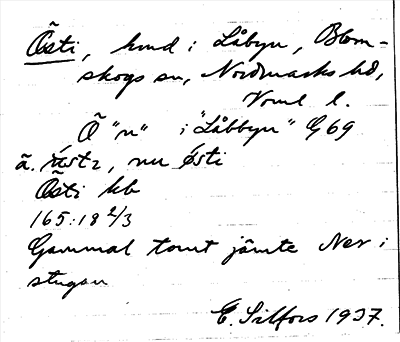 Östi, hmd i Låbyn, Blom-
skogs sn, Nordmarks hd,
Vrml l.
Ö "n" i "Låbbyn" G69
ä. råstz, nu östi
Östi kb
165:18 2/3
Gammal tomt jämte Ner i
stugan
E. Silfors 1937.